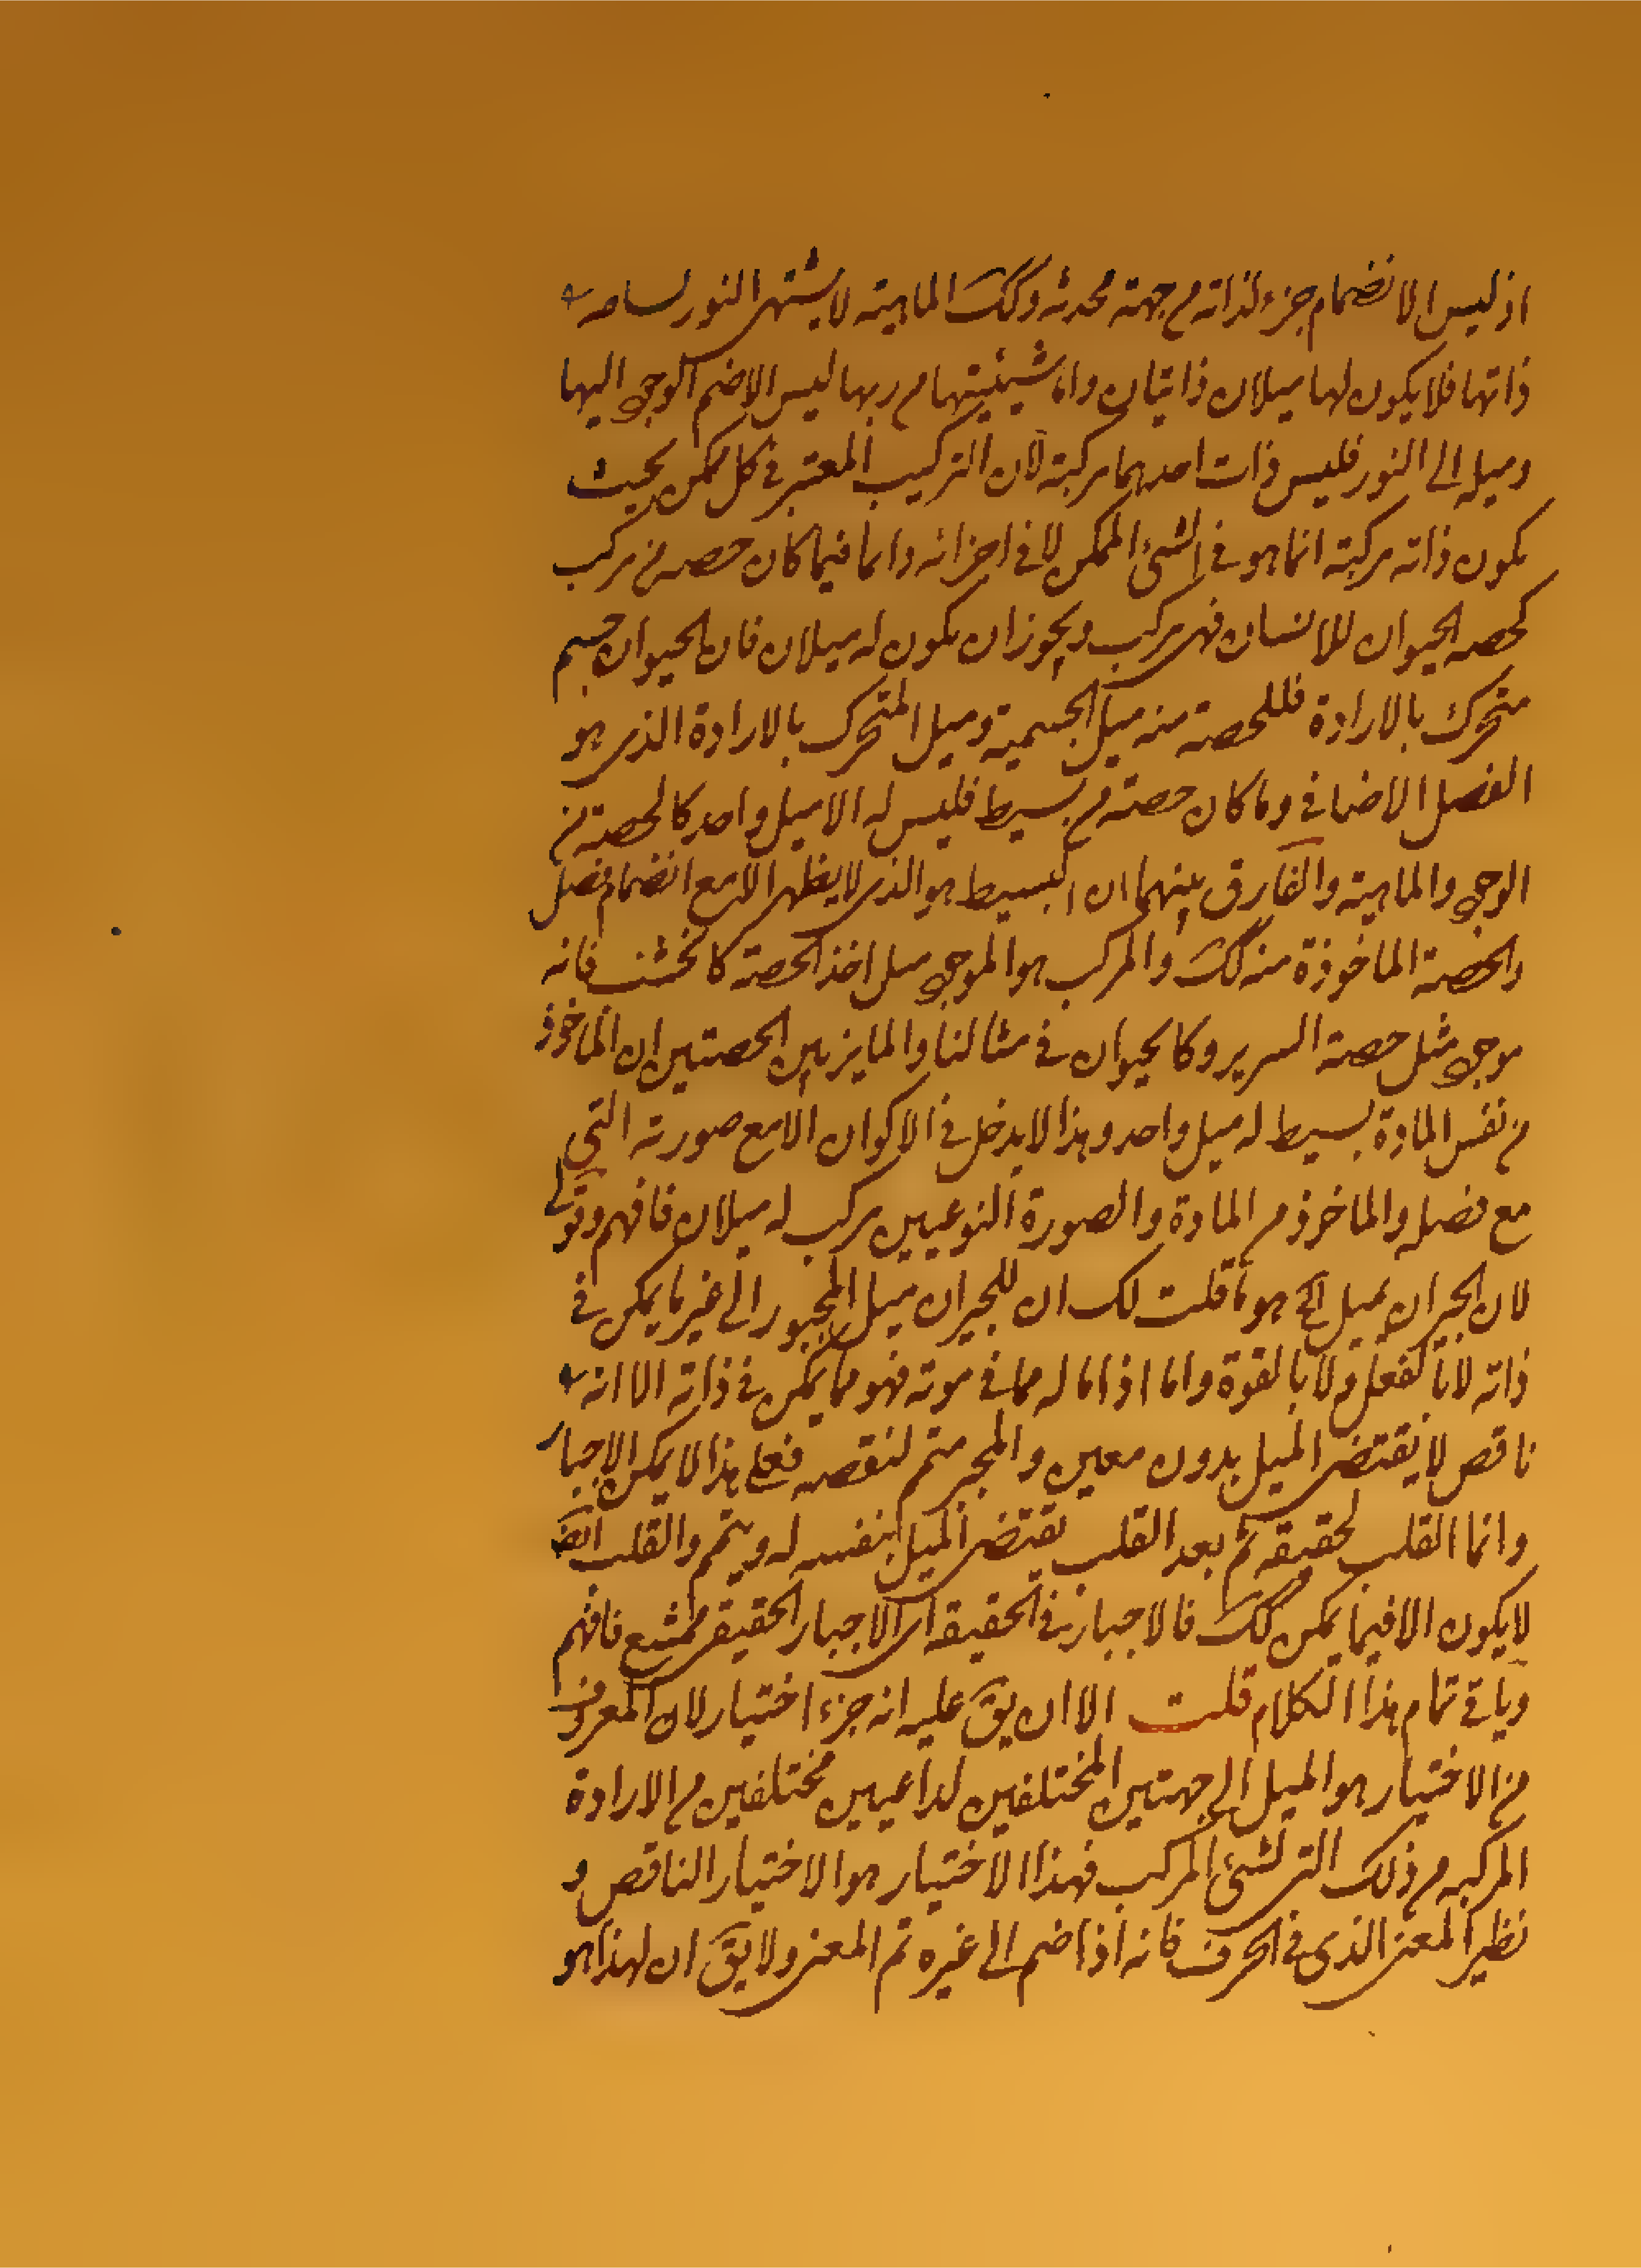 اذ ليس الا نضمام جزء لذاته من جهة محدثه وكك الماهية لا يشتهى النور لساطه
ذاتها فلا يكون لها ميلان ذاتيان وانما شيئيتها من ربها ليس الا ضم الوجو اليها
وميله الى النور فليس ذات احدهما مركبة لان التركيب المعتبر في كل ممكن بحيث
يكون ذاته مركبة انما هو في الشئ الممكن لا في اجزائه دائما فيما كان حصه من مركب
كحصه الحيوان للانسان فهى مركب ويجوز ان يكون له ميلان فان الحيوان جسم
متحرك بالارادة فللحصة منه ميل الجسمية وميل المتحرك بالارادة الذى هو
الفصل الاضافي وما كان حصته من بسيط فليس له الا ميل واحد كالحصة من
الوجو والماهية والفارق بينهما ان البسيط هو الذى لا يظهر الا مع انضمام فصل
والحصة الماخوذة منه كك والمركب هو الموجو قبل اخذ الحصة كالخشب فانه
موجو مثل حصة السرير وكالحيوان في مثالنا والمايز بين الحصتين ان الماخوذ
من نفس المادة بسيط له ميل واحد وهذا لا يدخل في الاكوان الا مع صورته التى
مع فصله والماخوذ من المادة والصورة النوعيين مركب له ميلان فافهم وقولى
لان الجبران يميل الخ هو ما قلت لك ان للجبران ميل المجبور الى غير ما يمكن في
ذاته لا بالفعل ولا بالقوة واما اذا ماله مما في موته فهو مما يمكن في ذاته الا انه
ناقص لا يقتضى الميل بدون معين والمجبر متمم لنقصه فعلى هذا لا يمكن الاجبار
وانما القلب لحقيقه ثم بعد القلب يقتضى الميل بنفسه له ويتمم والقلب ايض
لا يكون الا فيما يمكن كك فالاجبار في الحقيقه اى الاجبار الحقيقى ممتنع فافهم
وياتى تمام هذا الكلام قلت الا ان يق عليه انه جزء اختيار لان المعروف
من الاختيار هو الميل الى جهتين المختلفين لداعيين مختلفين من الارادة
المركبه من ذلك الشئ المركب فهذا الاختيار هو الاختيار الناقص و
نظير المعنى الذى في الحرف فانه اذا ضم الى غيره تم المعنى ولا يق ان لهذا هو